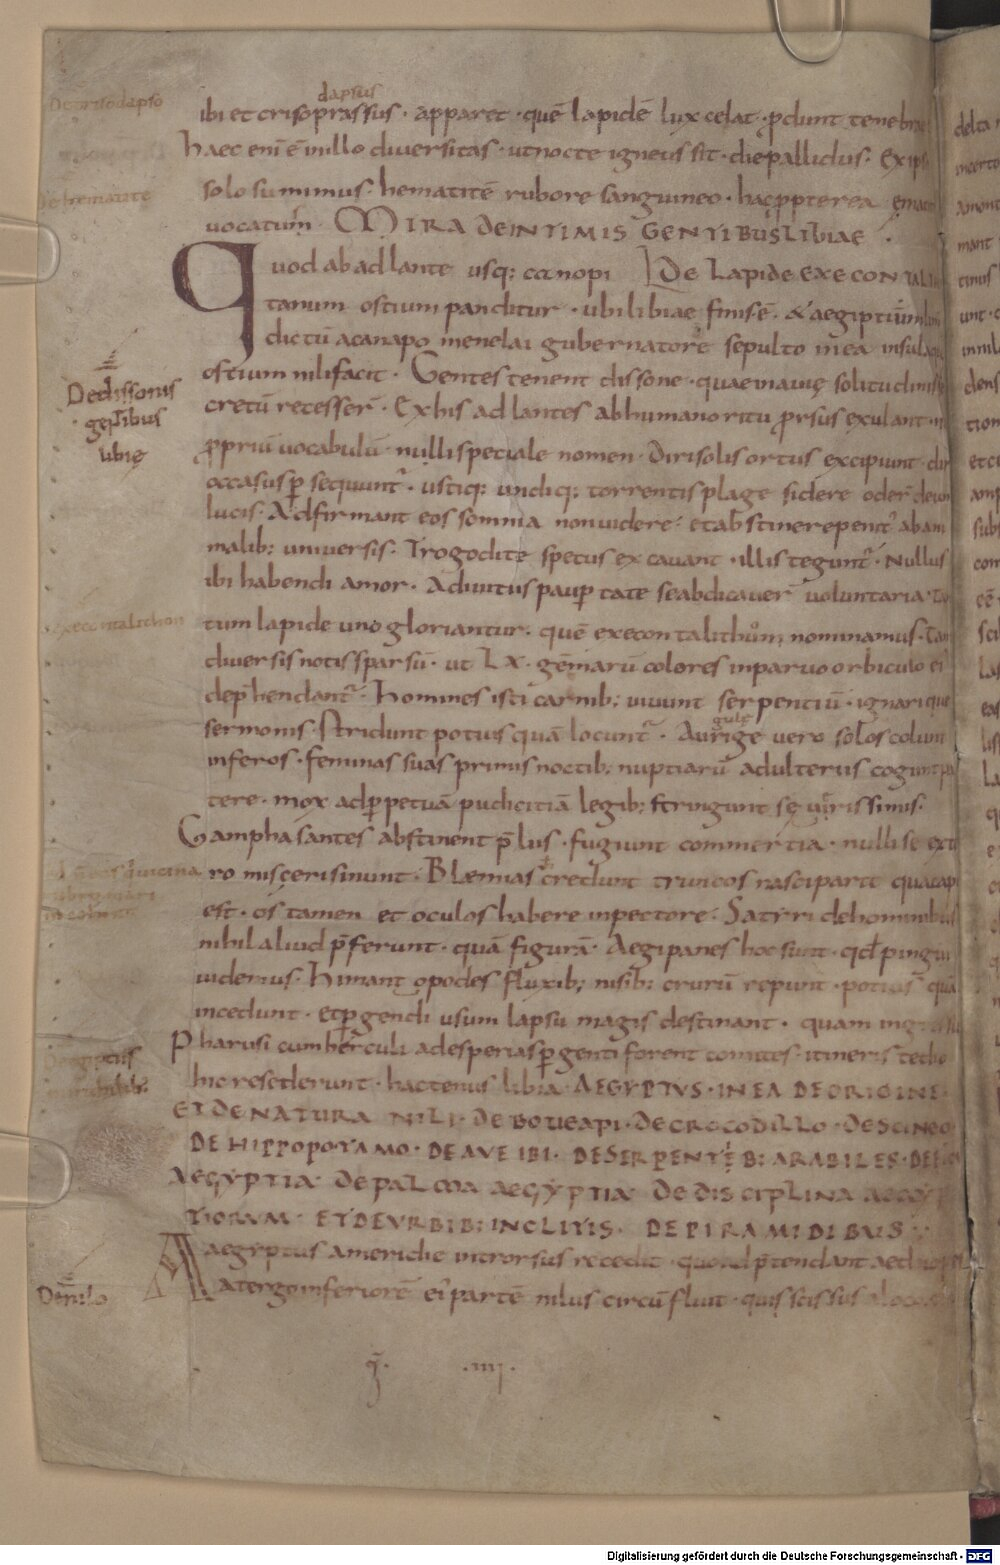 De crisodapso
dapsus
ibi et crisoprassus · apparet · quē lapidē lux celat · ꝓdunt tenebrae
haec eni ē in illo diversitas · ut nocte igneus sit · die pallidus · Ex ipso
De hematite
solo sumimus · hematitē rubore sanguineo · hac ppterea
uocatum · MIRA DE INTIMIS GENTIBUS LIBIAE ·
Quod ab adlante usq; canopi DE LAPIDE EXECONTALI
tanum ostium panditur · ubi libiae finis ē · & aegiptium
dictū a canapo menelai gubernatore sepulto in ea insula
De dissonis gentibus libie
ostium nili facit · Gentes tenent dissone · quae in auię solitudinis
cretū recesser̄ · Ex his adlantes ab humano ritu ꝓrsus exulant
ꝓpriū uocabulū · nulli speciale nomen · Diri solis ortus excipiunt · diri
occasus ꝑsequunt᷑ · ustiq; undiq; torrentis plage sidere oder̄ deum
lucis · Adfirmant eos somnia non videre · et abstinere penit᷑ ab ani
malib; universis · Trogodite specus excavant · illis tegunt᷑ · Nullus
ibi habendi amor · Aduitus pauꝑtate se abdicauer̄ voluntaria ·
execontalithon
tum lapide uno gloriantur · quē execontalithum nominamus · tam
diversis notis sparsū · ut LX · gēmarū colores in parvo orbiculo ei᷑
dep̄hendant᷑ · homines isti carnib; uiuunt serpentiū · ignarique
gulę
sermonis · Stridunt potius quā locunt᷑ · Aurige vero solos colunt
inferos · feminas suas primis noctib; nuptiarū adulteriis cogunt pa
tere · mox ad ꝑpetuā pudicitiā legib; stringunt
Gamphasantes abstinent p̄lus · fugiunt commertia · nulli se exte
ro misceri sinunt · Blemias credunt truncos nasci parte qua cap
est · os tamen et oculos habere in pectore · Satyri de hominibus
nihil aliud p̄ferunt · quā figurā · Aegipanes hoc sunt · qd̄ pingui
uiderius · himantopodes fluxib; nisib; crurū repunt · potius quā
incedunt · et ꝑgendi usum lapsu magis destinant · quam ingressu
Pharusi cum herculi ad esperias ꝑgenti forent comites · itineris tedio
De egiptiis
hic resederunt · hactenus libia · AEGYPTVS · IN EA DE ORIGINE
ET DE NATURA NILI · DE BOVE API · DE CROCODILLO · DE SCINCO
DE HIPPOPOTAMO · DE AVE IBI · DE SERPENTIB; ARABILES · DE FICU
AEGYPTIA DE PALMA AEGYPTIA DE DISCIPLINA AEGYP
TIORUM · ET DE VRBIB; INCLITIS · DE PIRAMIDIBUS
Aegyptus a meridie introrsus recedit · quoad p̄tendant aethiopes
De nilo
a tergo inferiorē ei᷑ partē nilus circū fluit · qui scissus a loco
q̄ · iiij ·
Digitalisierung gefördert durch die Deutsche Forschungsgemeinschaft - DFG